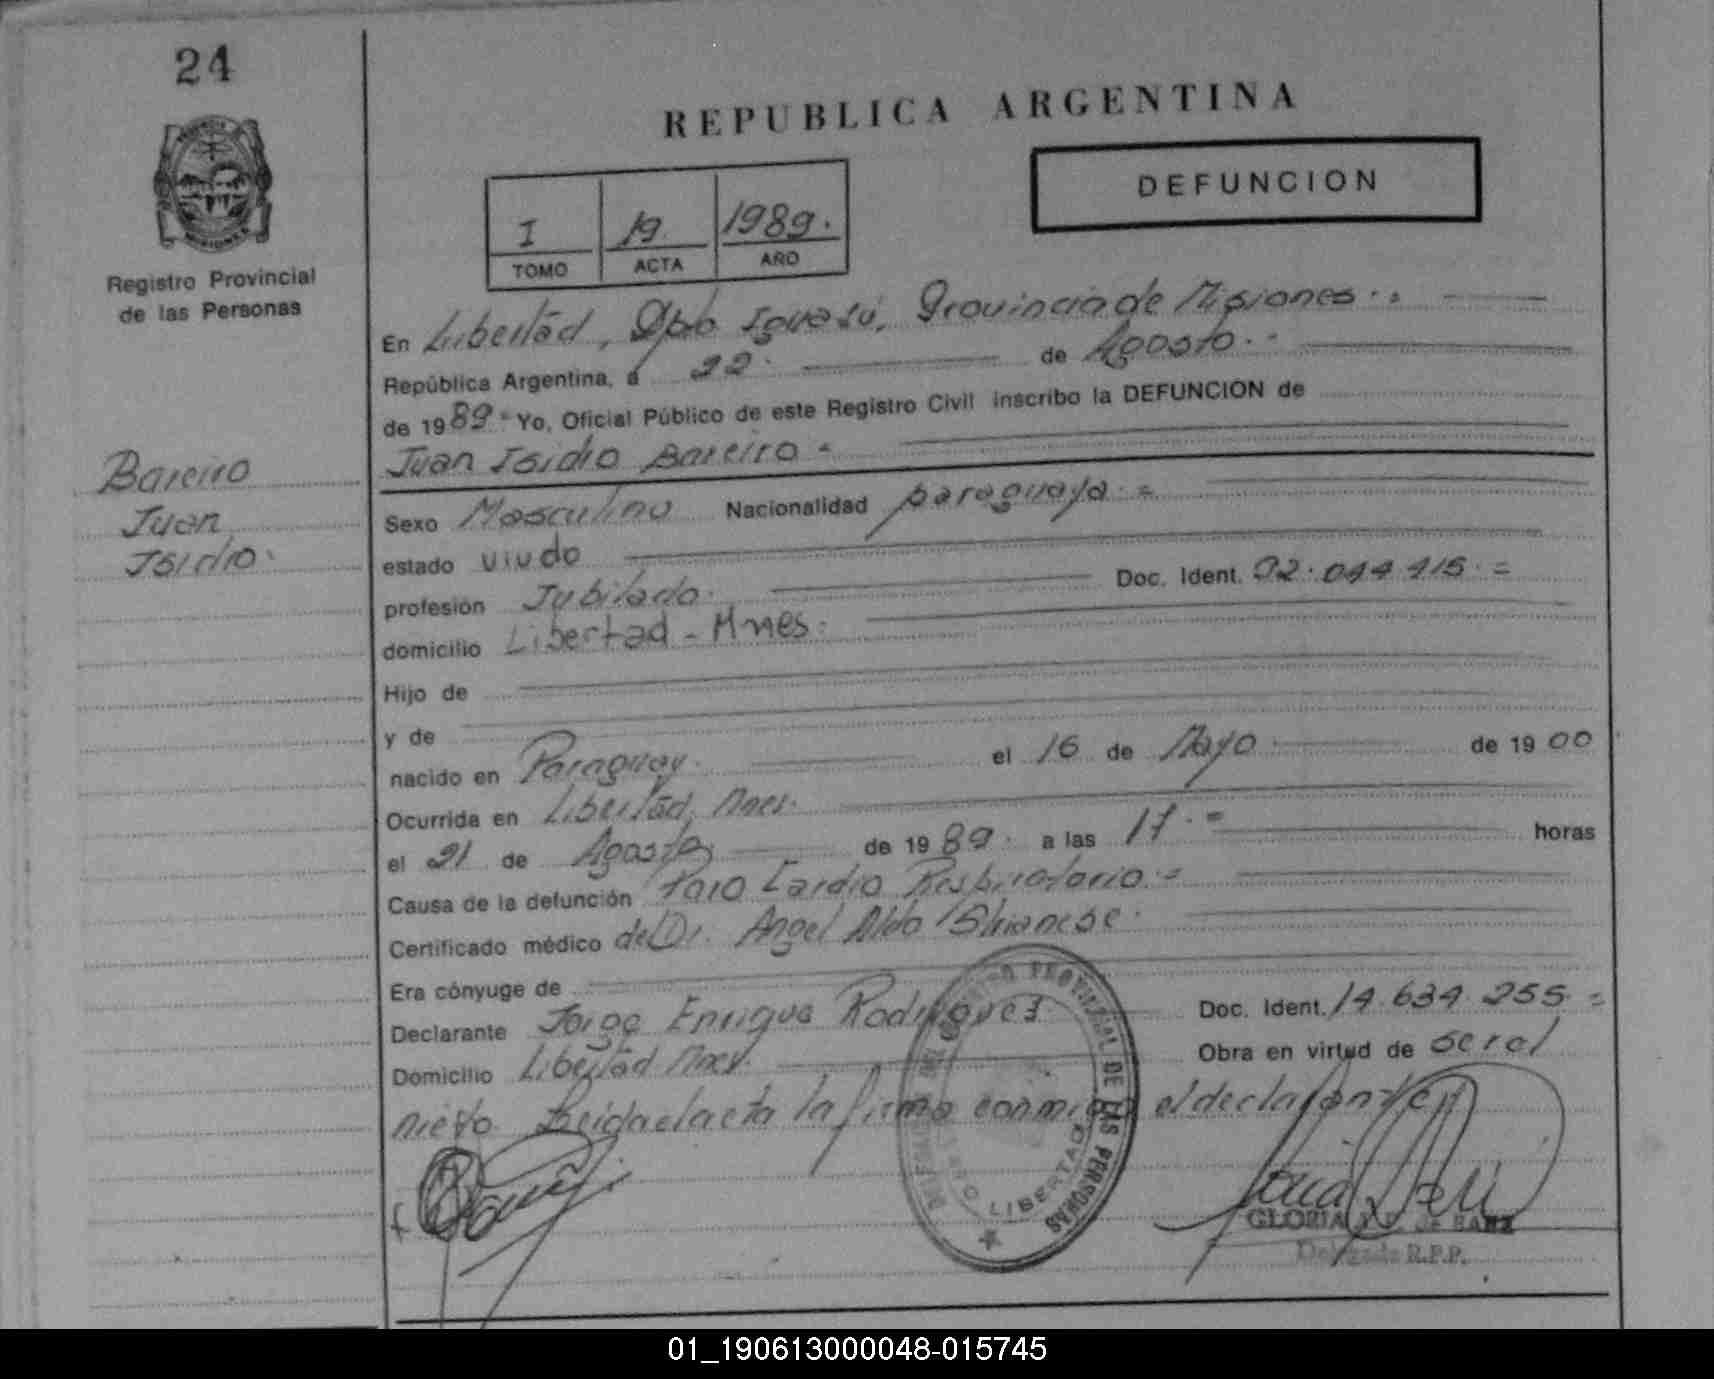 24
Registro Provincial
de las Personas
REPUBLICA ARGENTINA
DEFUNCION
I 19. 1989.
TOMO ACTA AÑO
En Libertad, Dpto Iguazú, Provincia de Misiones.=
República Argentina, a 22. de Agosto.-
de 1989= Yo, Oficial Público de este Registro Civil inscribo la DEFUNCION de
Juan Isidro Bareiro =
Bareiro
Juan
Isidro.
Sexo Masculino Nacionalidad paraguaya.=
estado viudo
profesión Jubilado. Doc. Ident. 92.044.415.=
domicilio Libertad - Mnes.
Hijo de
y de
nacido en Paraguay. el 16 de Mayo. de 1900
Ocurrida en Libertad, Mnes.
el 21 de Agosto de 1989. a las 17.= horas
Causa de la defunción Paro Cardio Respiratorio.=
Certificado médico del Dr. Angel Aldo
Era cónyuge de
Declarante Jorge Enrique Rodriguez Doc. Ident. 14.634.255.=
Domicilio Libertad Mnes. Obra en virtud de ser el
nieto. Leida el acta la firma conmigo el declarante
PROVINCIAL DE LAS PERSONAS
LIBERTAD
GLORIA
Delegada R.P.P.
01_190613000048-015745